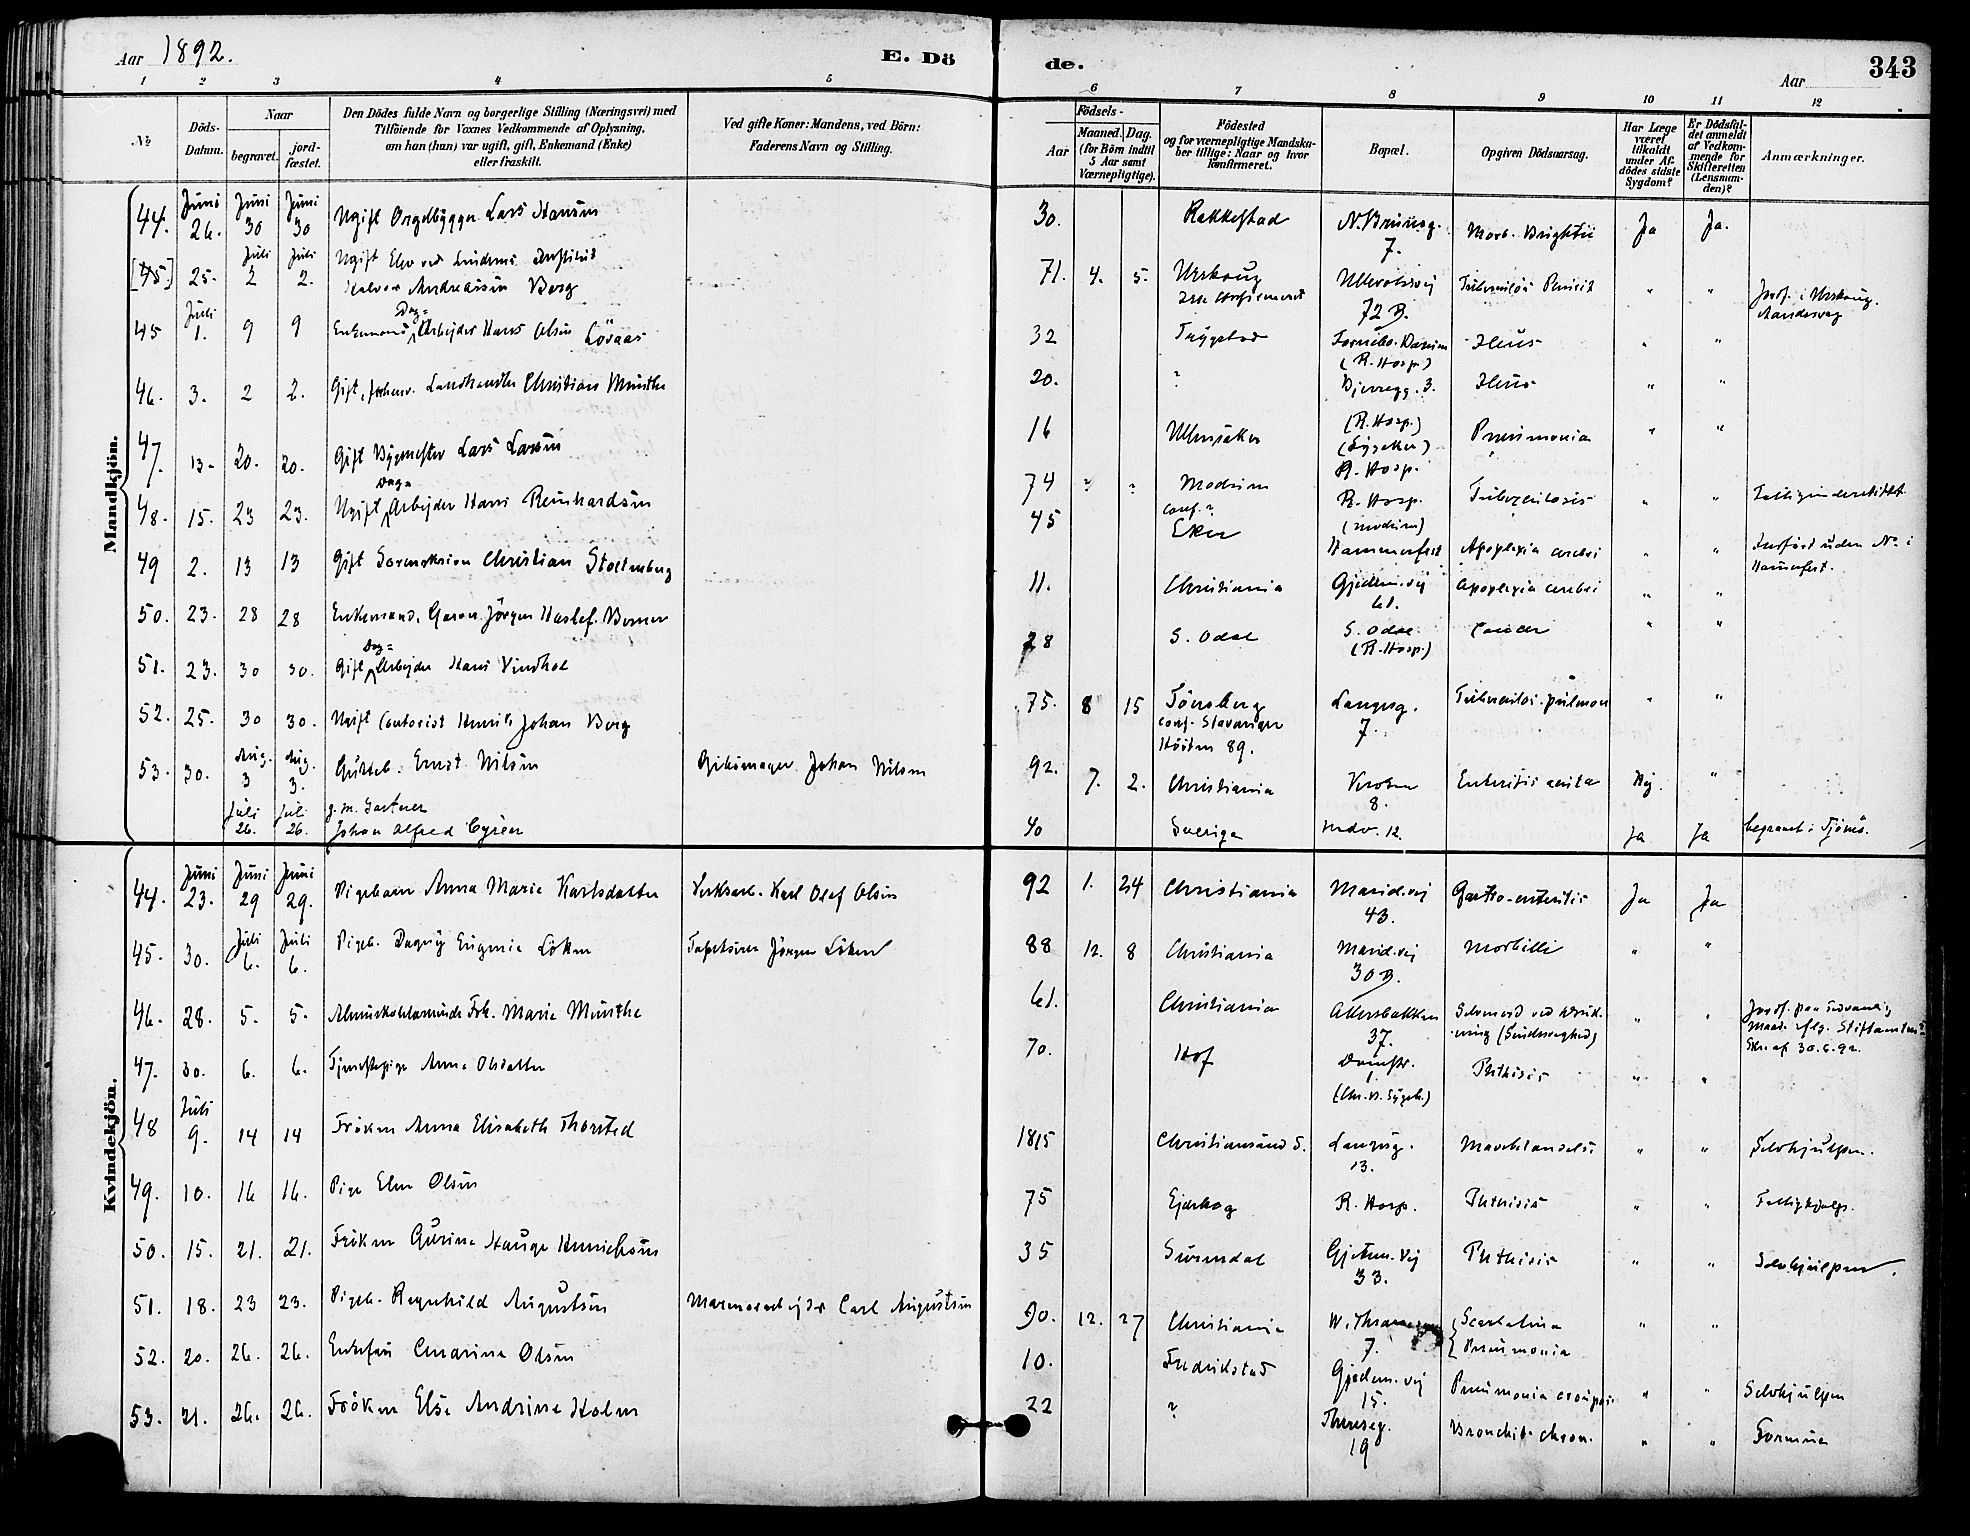 Aar 1892.
E. Döde.
Aar 343
1 2 3 4 5 6 7 8 9 10 11 12
No
Döds-Datum.
Naar
begravet.
jordfæstet.
Den Dödes fulde Navn og borgerlige Stilling (Næringsvei) med
Tilföiende for Voxnes Vedkommende af Oplysning,
om han (hun) var ugift, gift, Enkemand (Enke)
eller fraskilt.
Ved gifte Koner: Mandens, ved Börn:
Faderens Navn og Stilling.
Födsels-
Aar
Maaned. Dag.
(for Börn indtil
5 Aar samt
Værnepligtige).
Födested
og for værnepligtige Mandskaber tillige: Naar og hvor
konfirmeret.
Bopæl.
Opgiven Dödsaarsag.
Har Læge
været
tilkaldt
under Afdödes sidste
Sygdom?
Er Dödsfaldet anmeldt
af Vedkommende for
Skifteretten
(Lensmanden)?
Anmærkninger.
Mandkjön.
44. Juni 26. Juni 30 Juni 30 Ugift Orgelbygger Lars Hansen 30. Rakkestad N. Bruusg. 7. Morb. Brightii Ja Ja.
[45] 25. Juli 2 Juli 2. Ugift Elev ved Halvor Andreassen Berg 71. 4. 5. Urskoug Ullevolsvej 72 B. " " Jordf. i Urskoug.
45 Juli 1. 9 9 Enkemand Dag=Arbejder Hans Olsen Lövaas 32 Trygstad (R. Hosp.) Ileus " "
46. 3. 2 2. Gift, Landhandler Christian Munthe 20. ? Bjerregg. 3. (R. Hosp.) Ileus " "
47. 13. 20. 20. Gift Bygmester Lars Larsen 16 Ullensaker R. Hosp. Pneumonia " "
48. 15. 23 23. Ugift Dag=Arbejder Hans Reinhardsen 74 ? ? Modum conf. ? R. Hosp. (Modum) Tuberculosis " "
49 2. 13 13 Gift Sorenskriver Christian Stoltenberg 45 Eker Hammerfest Apoplexia cerebri " " Indført uden No. i Hammerfest.
50. 23. 28 28 Enkemand, Garver Jörgen Haslef. Berner 11. Christiania Gjedem. vej 61. Apoplexia cerebri " "
51. 23. 30 30. Gift Dag=Arbejder Hans Vindhol 28 S. Odal S. Odal (R. Hosp.) Cancer " "
52. 25. 30 30. Ugift Contorist Henrik Johan Berg 75. 8 15 Tönsberg conf. Stavanger Hösten 89. Langesg. 7. Tuberculos. pulmon " "
53. 30. Aug. 3 Aug. 3. Gutteb. Ernst Nilsen Johan Nilsen 92. 7. 2. Christiania 8. Enteritis acuta Nej. "
Juli 26. Juli 26. g. m. Gartner Johan Alfred Cyrén 40 Sverige 12. Ja Ja begravet i Tjömö.
Kvindekjön.
44. Juni 23. Juni 29 Juni 29. Pigebarn Anna Marie Karlsdatter Karl Olaf Olsen 92 1. 24 Christiania Marid.vej 43. Gastro-enteritis Ja Ja
45. 30. Juli 6. Juli 6. Pigeb. Dagny Eugenie Löken Jörgen Löken 88 12. 8 Christiania Marid.vej 30 B. Morbilli " "
46. 28. 5. 5. Almueskolelærerinde Frk. Marie Munthe 61. Christiania Akersbakken 37. Selvmord ved (Sindssvaghed) " " 30.6.92.
47. 30. 6. 6. Tjenestepige Anna Olsdatter 70. Hof 1. Phthisis " "
48 Juli 9. 14 14 Fröken Anna Elisabeth Thorsted 1815 Christiansand S. Langesg. 13. " " Selvhjulpen.
49. 10. 16 16. Pige Elen Olsen 75 Ejdskog R. Hosp. Phthisis " "
50. 15. 21. 21. Fröken Gurine Hauge Henriksen 35 Surendal Gjetem. Vej 33. Phthisis " " Selvhjulpen.
51. 18. 23 23. Pigeb. Ragnhild Augustsen Marmorarbejder Carl Augustsen 90. 12. 27 Christiania 7. Scarlatina Pneumonia " "
52. 20. 26. 26. Enkefru Olsen 10. Fredrikstad Gjedem. vej 15. Pneumonia " " Selvhjulpen
53. 21. 26. 26. Fröken Else Andrine Holm 22 ? Thereseg. 19 Bronchit. chron. " " Formue